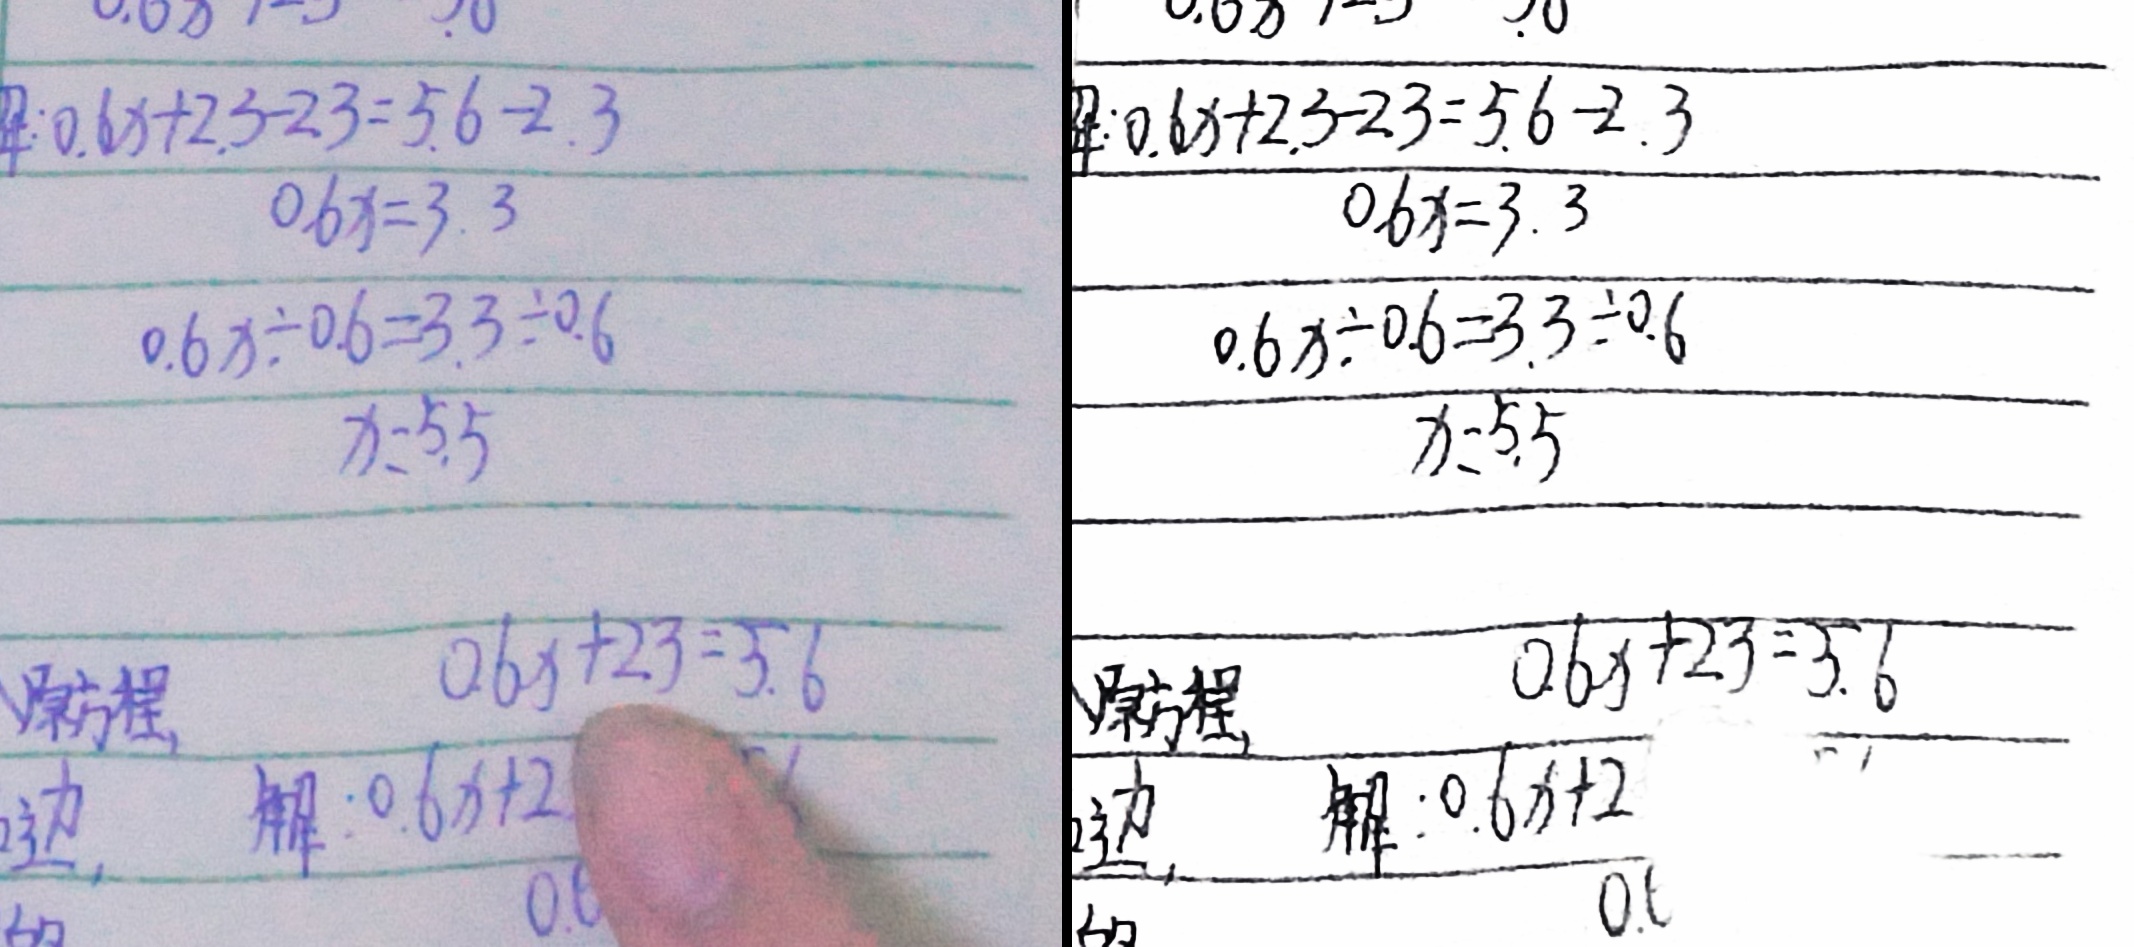 解:0.6x+2.3-2.3=5.6-2.3
0.6x=3.3
0.6x÷0.6=3.3÷0.6
x=5.5
0.6x+2.3=5.6
原方程,
边, 解:0.6x+2
0.6
的
解:0.6x+2.3-2.3=5.6-2.3
0.6x=3.3
0.6x÷0.6=3.3÷0.6
x=5.5
0.6x+2.3=5.6
原方程,
边, 解:0.6x+2
0.
的